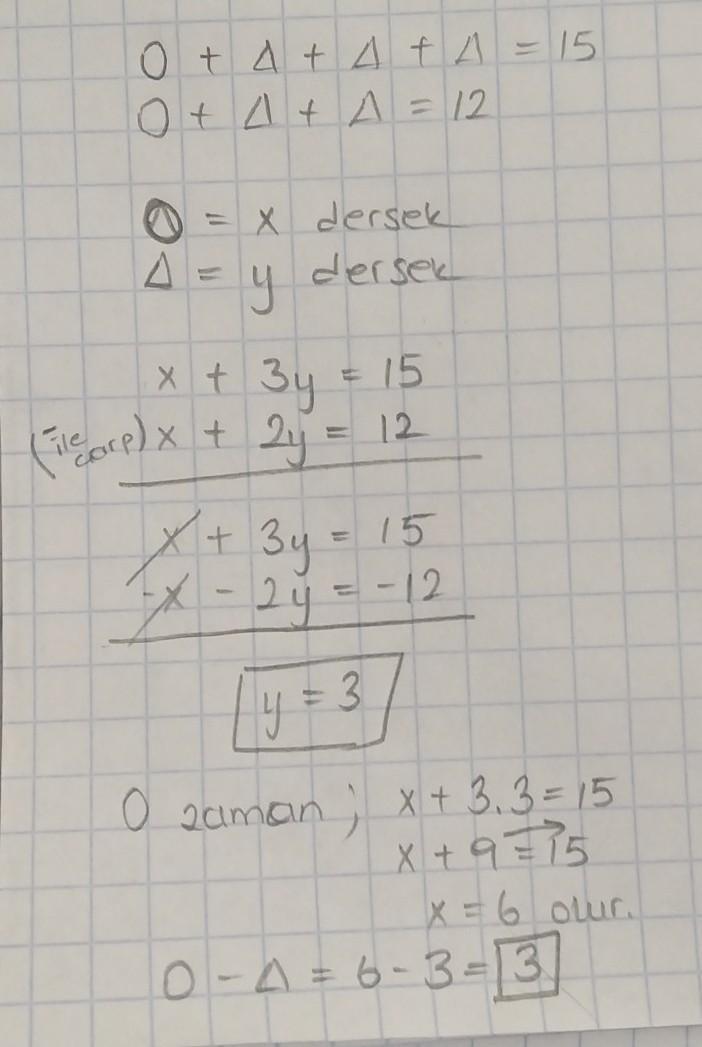 O + Δ + Δ + Δ = 15
O + Δ + Δ = 12
O = x dersek
Δ = y dersek
x + 3y = 15
(- ile çarp) x + 2y = 12
x + 3y = 15
-x - 2y = -12
y = 3
O zaman ; x + 3.3 = 15
x + 9 = 15
x = 6 olur.
O - Δ = 6 - 3 = 3